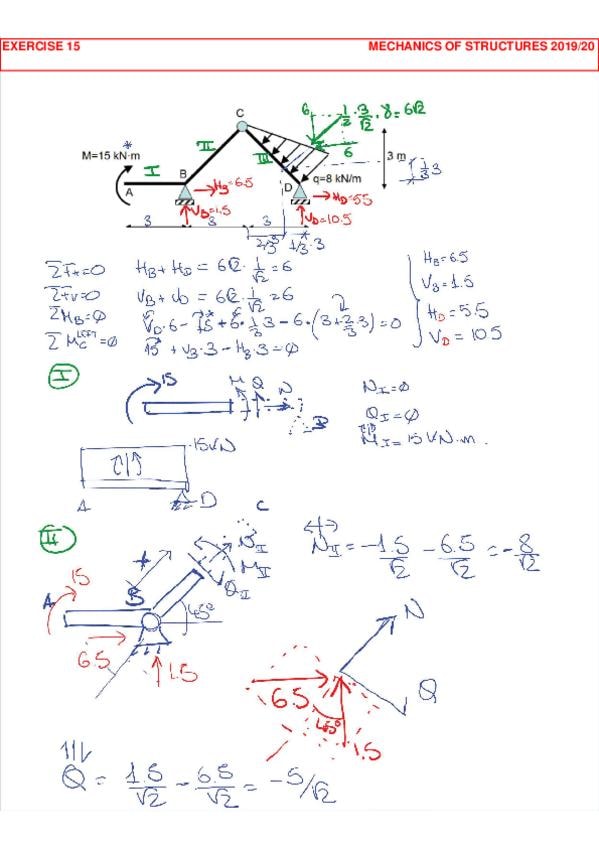 EXERCISE 15 MECHANICS OF STRUCTURES 2019/20
C
6 1/2 · 3/√2 · 8 = 6√2
6
M=15 kN·m
*
I
II
III
3 m
1/3 3
A
B
H_B=6.5
D
q=8 kN/m
H_D=5.5
V_B=1.5
V_D=10.5
3 3 3
2/3·3 1/3·3
ΣFx=0 H_B + H_D = 6√2 · 1/√2 = 6
ΣFv=0 V_B + V_D = 6√2 · 1/√2 = 6
ΣM_B=0 V_D·6 - 15 + 6·1/3·3 - 6·(3+2/3·3) = 0
ΣM_C^LEFT=0 15 + V_B·3 - H_B·3 = 0
H_B=6.5
V_B=1.5
H_D=5.5
V_D=10.5
I
15
M Q N
B
N_I=0
Q_I=0
M_I=15 kN·m.
15kN
A
D
C
II
15
A
B
+
N_II
M_II
Q_II
45°
6.5
1.5
N_II = -1.5/√2 - 6.5/√2 = -8/√2
N
Q
6.5
45°
1.5
Q = 1.5/√2 - 6.5/√2 = -5/√2